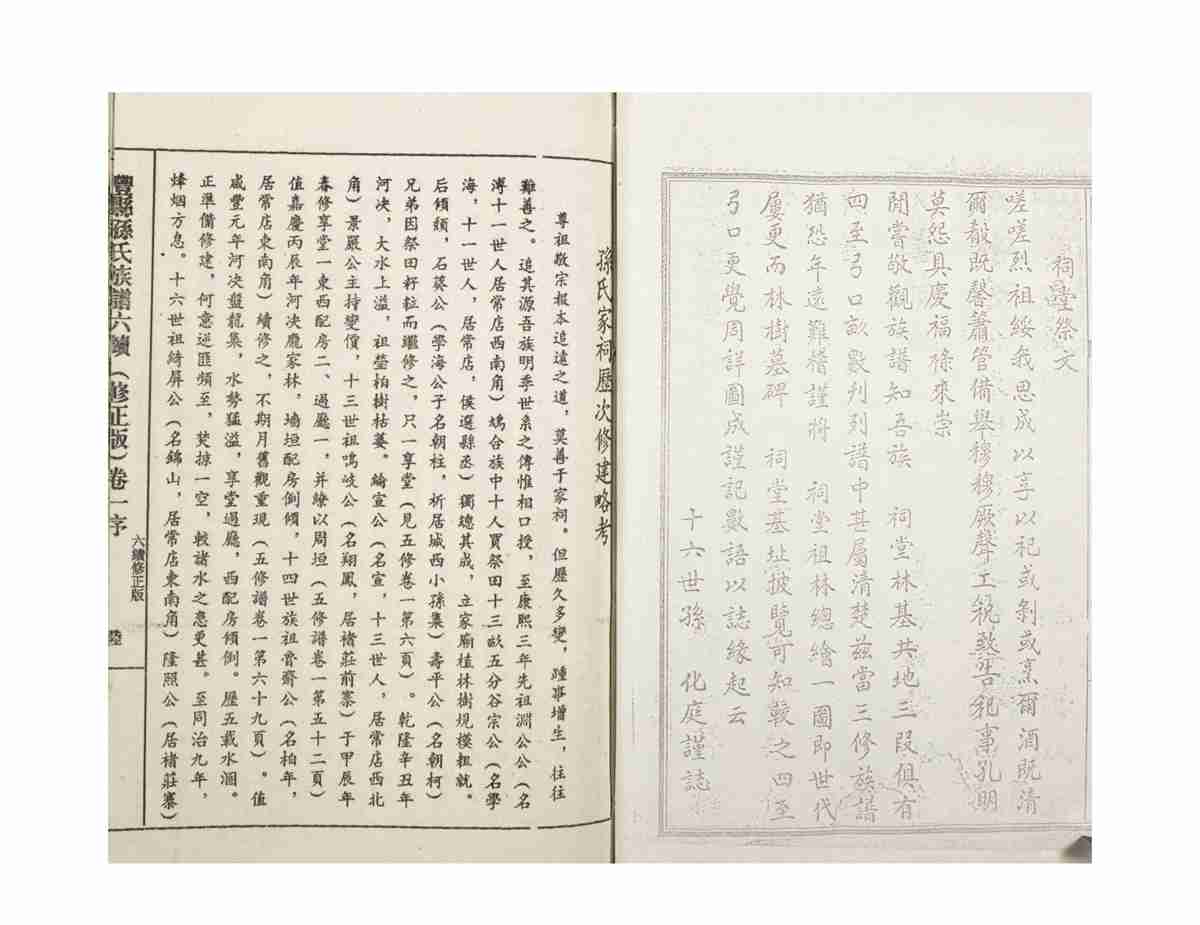 祠塋祭文
嗟嗟烈祖綏我思成以享以祀或剝或烹爾酒既清
爾殽既馨簫管備舉穆穆厥聲工祝致告祀事孔明
莫怨具慶福祿來崇
閒嘗敬觀族譜知吾族 祠堂林基共地三段俱有
四至弓口畝數刋列譜中甚屬清楚茲當三修族譜
猶恐年遠難稽謹將 祠堂祖林總繪一圖即世代
屢更而林樹墓碑 祠堂基址披覽可知較之四至
弓口更覺周詳圖成謹記數語以誌緣起云
十六世孫 化庭謹誌
孫氏家祠歷次修建略考
尊祖敬宗報本追遠之道，莫善于家祠。但歷久多變，踵事增生，往往
難善之。追其源吾族明季世系之傳惟相口授，至康熙三年先祖淵公公（名
溥十一世人居常店西南角）鳩合族中十人買祭田十三畝五分谷宗公（名學
海，十一世人，居常店，侯選縣丞）獨總其成，立家廟植林樹規模粗就。
后傾頹，石蓭公（學海公子名朝柱，析居城西小孫集）壽平公（名朝柯）
兄弟因祭田籽粒而繼修之，只一享堂（見五修卷一第六頁）。乾隆辛丑年
河决，大水上溢，祖塋柏樹枯萎。綸宣公（名宣，十三世人，居常店西北
角）景嚴公主持變價，十三世祖鳴岐公（名翔鳳，居褚莊前寨）于甲辰年
春修享堂一東西配房二、過廳一，并繚以周垣（五修譜卷一第五十二頁）
值嘉慶丙辰年河决龐家林，墻垣配房倒傾，十四世族祖晉齋公（名柏年，
居常店東南角）續修之，不期月舊觀重現（五修譜卷一第六十九頁）。值
咸豐元年河决盤龍集，水勢猛溢，享堂過廳，西配房傾倒。歷五載水涸。
正準備修建，何意逆匪頻至，焚掠一空，較諸水之患更甚。至同治九年，
烽烟方息。十六世祖綺屏公（名錦山，居常店東南角）隆照公（居褚莊寨）
豐縣孫氏族譜六續（修正版）卷一序
六續修正版
陸